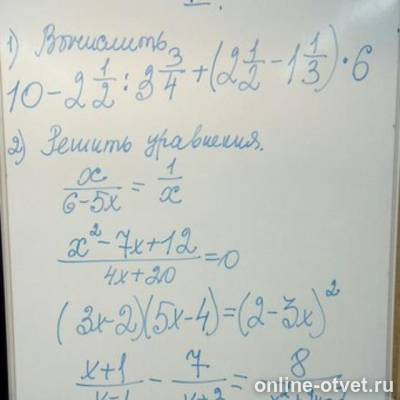 1) Вычислить
10 - 2 1/2 : 3 3/4 + (2 1/2 - 1 1/3) · 6
2) Решить уравнения.
x/(6-5x) = 1/x
(x² - 7x + 12)/(4x + 20) = 0
(3x-2)(5x-4) = (2-3x)²
x+1 / - 7 / = 8 /
online-otvet.ru